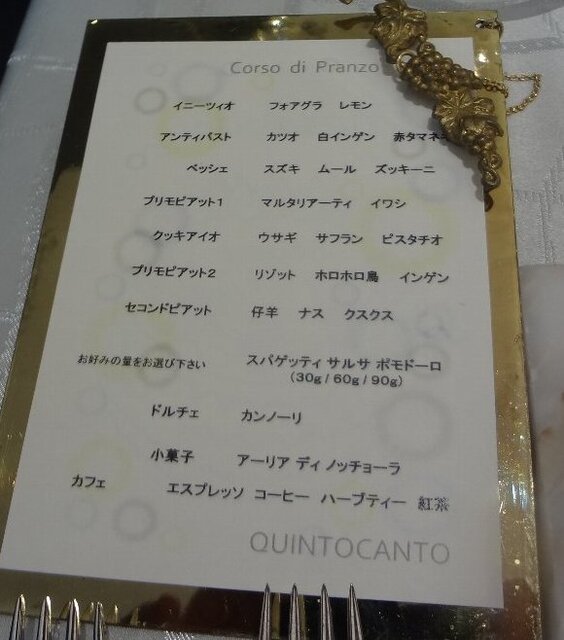 Corso di Pranzo
イニーツィオ フォアグラ レモン
アンティパスト カツオ 白インゲン 赤タマネギ
ペッシェ スズキ ムール ズッキーニ
プリモピアット1 マルタリアーティ イワシ
クッキアイオ ウサギ サフラン ピスタチオ
プリモピアット2 リゾット ホロホロ鳥 インゲン
セコンドピアット 仔羊 ナス クスクス
お好みの量をお選び下さい スパゲッティ サルサ ポモドーロ
(30g / 60g / 90g)
ドルチェ カンノーリ
小菓子 アーリア ディ ノッチョーラ
カフェ エスプレッソ コーヒー ハーブティー 紅茶
QUINTOCANTO